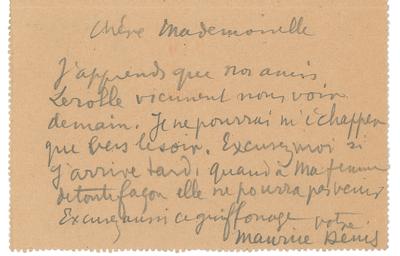 Chère Mademoiselle
J'apprends que nos amis
Lerolle viennent nous voir
demain. Je ne pourrai m'échapper
que vers le soir. Excusez moi si
j'arrive tard; quand à ma femme
de toute façon elle ne pourra pas venir
Excusez aussi ce griffonage votre
Maurice Denis